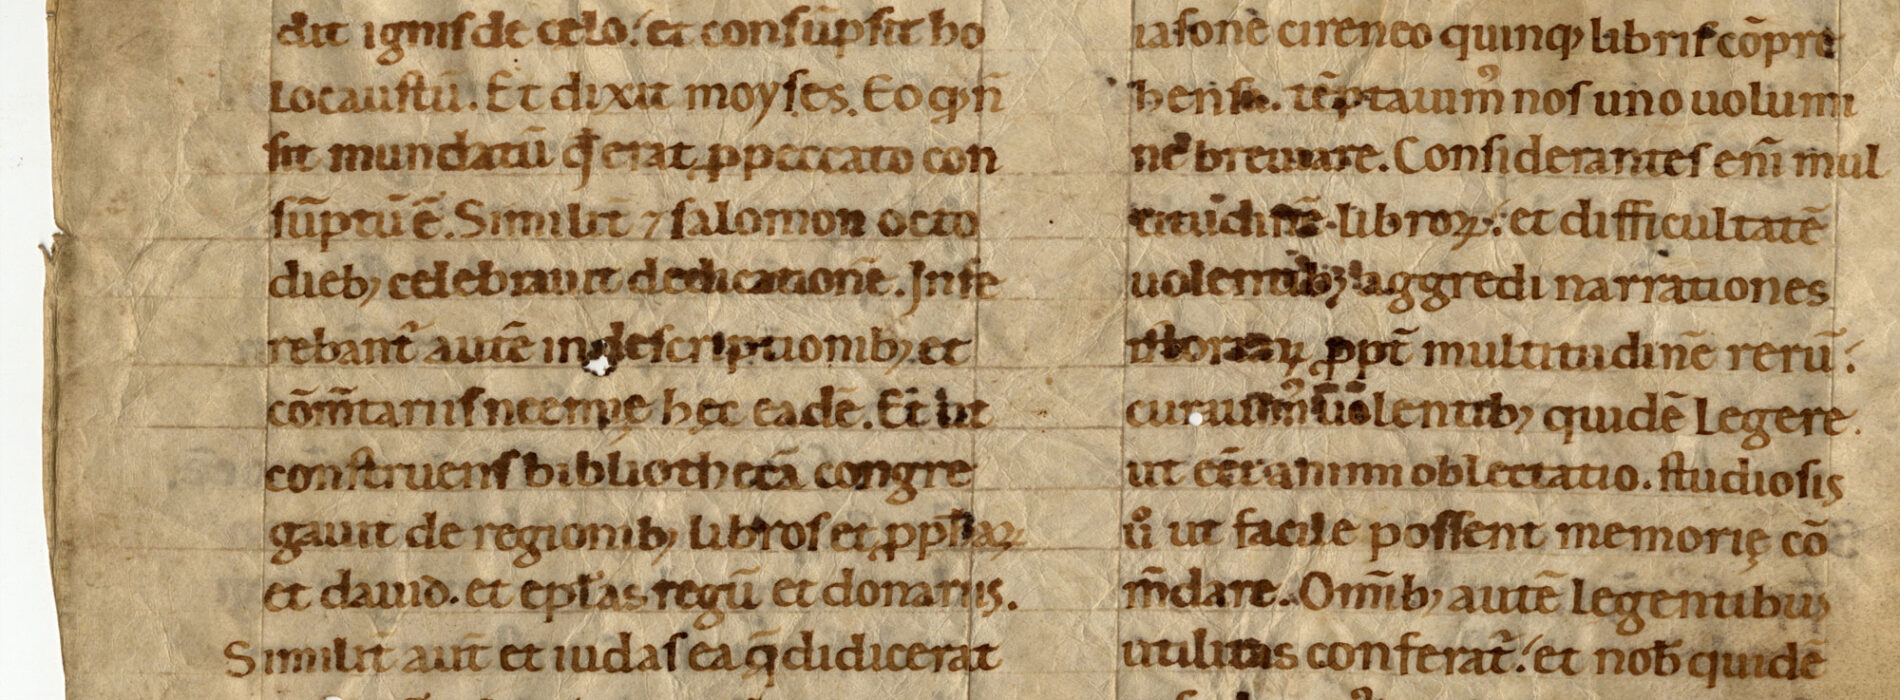 dit ignis de celo. et consūpsit ho
locaustū. Et dixit moyses. Eo qđ ñ
sit mundatū qđ erat ꝓ peccato con
sūptū ē. Similit̄ ⁊ salomon octo
dieb; celebrauit dedicationē. Infe
rebant᷑ autē in descriptionib; et
cōm̄tariis neemię hęc eadē. Et ut
construens bibliothecā congre
gauit de regionib; libros et ꝓpħaꝝ
et dauid. et ep̄łas regū et donariis.
Similit̄ aut̄ et iudas ea q̄ didicerat
iasone cireneo quinq; libris cōpre
hensa. tēptauim᷒ nos uno uolumi
ne breuiare. Considerantes eni̅ mul
titudinē libroꝝ. et difficultatē
uolentib; aggredi narrationes
historiaꝝ ꝓpt̄ multitudinē rerū.
curauim᷒ uolentib; quidē legere
ut eēt animi oblectatio. studiosis
ů ut facile possent memorię cō
m̄dare. Omīb; autē legentibus
utilitas conferat᷑. et nob̄ quidē